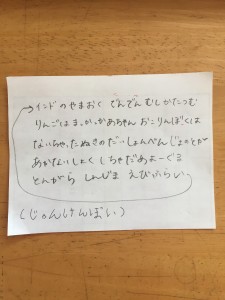 インドのやまおく でんでんむしかたつむ
りんごはまっかっかあちゃん おこりんぼくは
ないちゃったぬきのだいしょんべんじょのとが
あかないしょく しちゃだあよーぐる
とんがら しんじま えびふらい
(じゃんけんぽい)